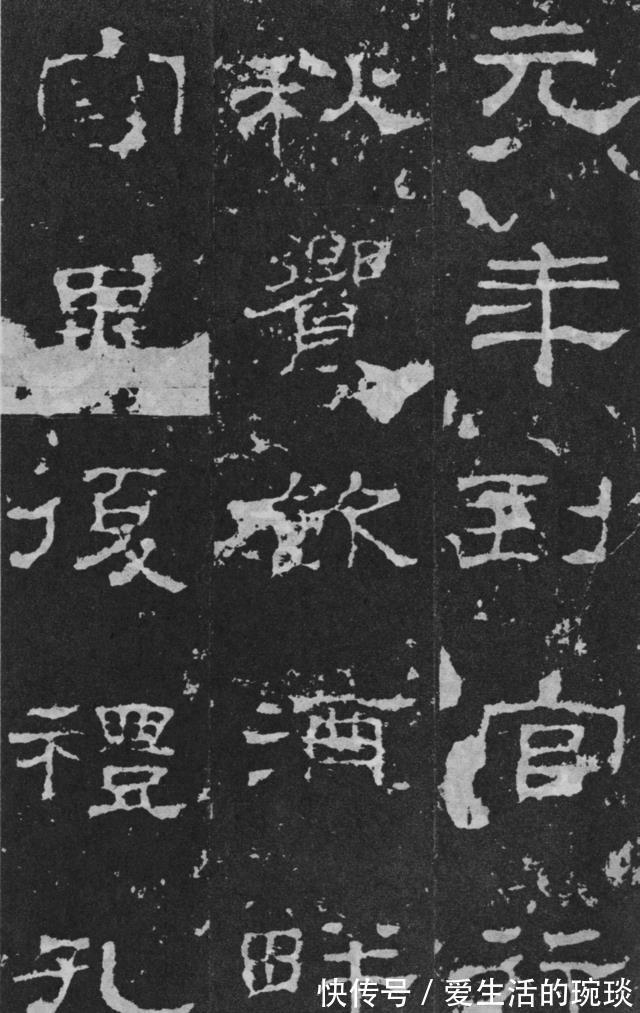 元年到官行
秋饗飲酒畔
宮畢復禮孔
快传号 / 爱生活的琬琰